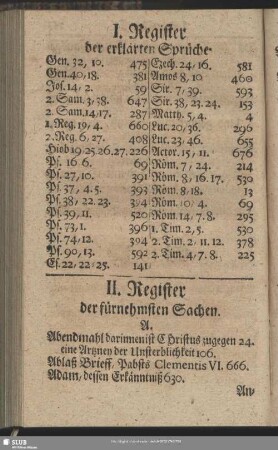 I. Register
der erklärten Sprüche.
Gen. 32, 10. 475
Gen. 40, 18. 381
Jos. 14, 2. 59
2. Sam. 3, 38. 647
2. Sam. 14, 17. 287
1. Reg. 19, 4. 660
2. Reg. 6, 27. 408
Hiob 19, 25. 26. 27. 226
Ps. 16. 6. 69
Ps. 27, 10. 391
Ps. 37, 4. 5. 393
Ps. 38, 22. 23. 394
Ps. 39, 11. 520
Ps. 73, 1. 396
Ps. 74, 12. 394
Ps. 90, 13. 592
Es. 22, 22. 25. 141
Ezech. 24, 16. 581
Amos 8, 10 460
Sir. 7, 39. 593
Sir. 38, 23. 24. 153
Matth. 5, 4. 4
Luc. 20, 36. 296
Luc. 23, 46. 655
Actor. 15, 11. 676
Röm. 7, 24. 214
Röm. 8, 16. 17. 530
Röm. 8, 18. 13
Röm. 10, 4. 69
Röm. 14, 7. 8. 295
1. Tim. 2, 5. 530
2. Tim. 2, 11. 12. 378
2. Tim. 4, 7. 8. 225
II. Register
der fürnehmsten Sachen.
A.
Abendmahl darinnen ist Christus zugegen 24.
eine Artzney der Unsterblichkeit 106.
Ablaß Brieff, Pabsts Clementis VI. 666.
Adam, dessen Erkänntniß 630.
An-